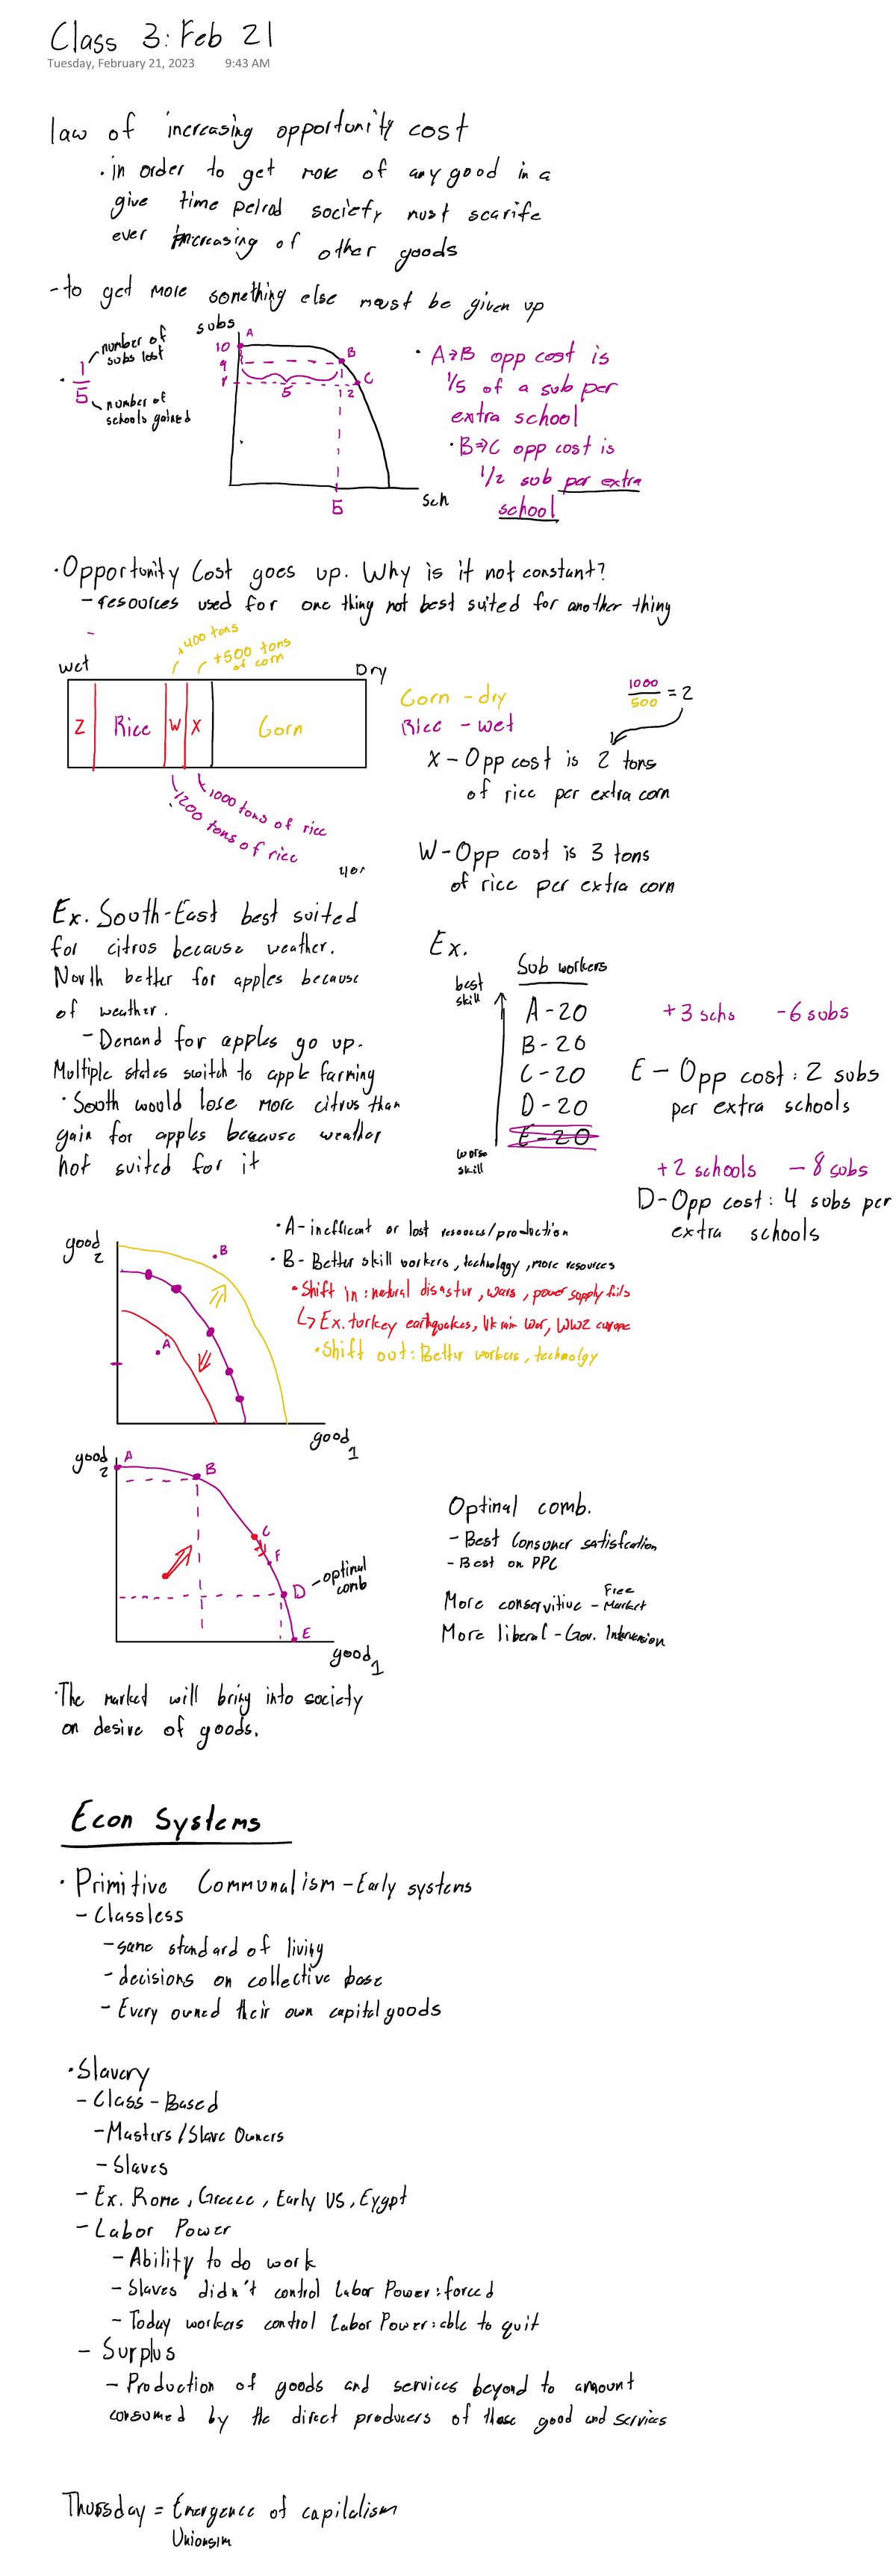 Class 3: Feb 21
Tuesday, February 21, 2023 9:43 AM
law of increasing opportunity cost
· in order to get more of any good in a
give time peirod society must scarife
ever increasing of other goods
- to get more something else must be given up
subs
A
10
9
7
B
C
5
1 2
5
Sch
· 1/5
number of
subs lost
number of
schools gained
· A→B opp cost is
1/5 of a sub per
extra school
· B⇒C opp cost is
1/2 sub per extra
school
· Opportunity Cost goes up. Why is it not constant?
- resources used for one thing not best suited for another thing
+400 tons
+500 tons
of corn
Wet
Dry
Z Rice W X Corn
1000 tons of rice
1200 tons of rice
Corn - dry
Rice - wet
1000/500 = 2
X - Opp cost is 2 tons
of rice per extra corn
W - Opp cost is 3 tons
of rice per extra corn
Ex. South-East best suited
for citrus because weather.
North better for apples because
of weather.
- Demand for apples go up.
Multiple states switch to apple farming
· South would lose more citrus than
gain for apples because weather
not suited for it
Ex.
Sub workers
best
skill
A-20
B-20
C-20
D-20
E-20
worse
skill
+3 schs -6 subs
E - Opp cost: 2 subs
per extra schools
+2 schools -8 subs
D-Opp cost: 4 subs per
extra schools
good 2
· B
· A
good 1
· A - inefficent or lost resources/production
· B - Better skill workers, technology, more resources
· Shift in: natural disastur, wars, power supply fails
↳ Ex. turkey earthquakes, Ukrain War, WW2 europe
· Shift out: Better workers, technolgy
good 2
A
B
C
F
D - optimal
comb
E
good 1
Optimal comb.
- Best Consumer satisfcation
- Best on PPC
More conservitive - Free
Market
More liberal - Gov. Intervension
· The market will bring into society
on desire of goods.
Econ Systems
· Primitive Communalism - Early systems
- Classless
- same standard of living
- decisions on collective base
- Every owned their own capital goods
· Slavery
- Class-Based
- Masters/Slave Owners
- Slaves
- Ex. Rome, Greece, Early US, Eygpt
- Labor Power
- Ability to do work
- Slaves didn't control Labor Power: forced
- Today workers control Labor Power: able to quit
- Surplus
- Production of goods and services beyond to amount
consumed by the direct producers of those good and services
Thursday = Emergence of capitalism
Unionsim